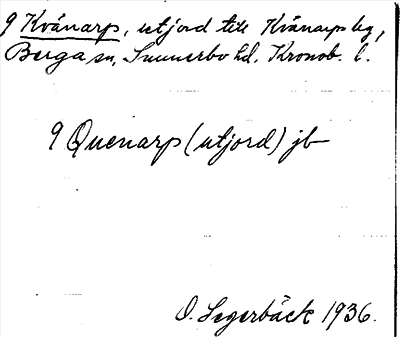 9 Kvänarp, utjord till Kvänarps by,
Berga sn, Sunnerbo hd. Kronob. l.
9 Quenarp (utjord) jb
O. Segerbäck 1936.